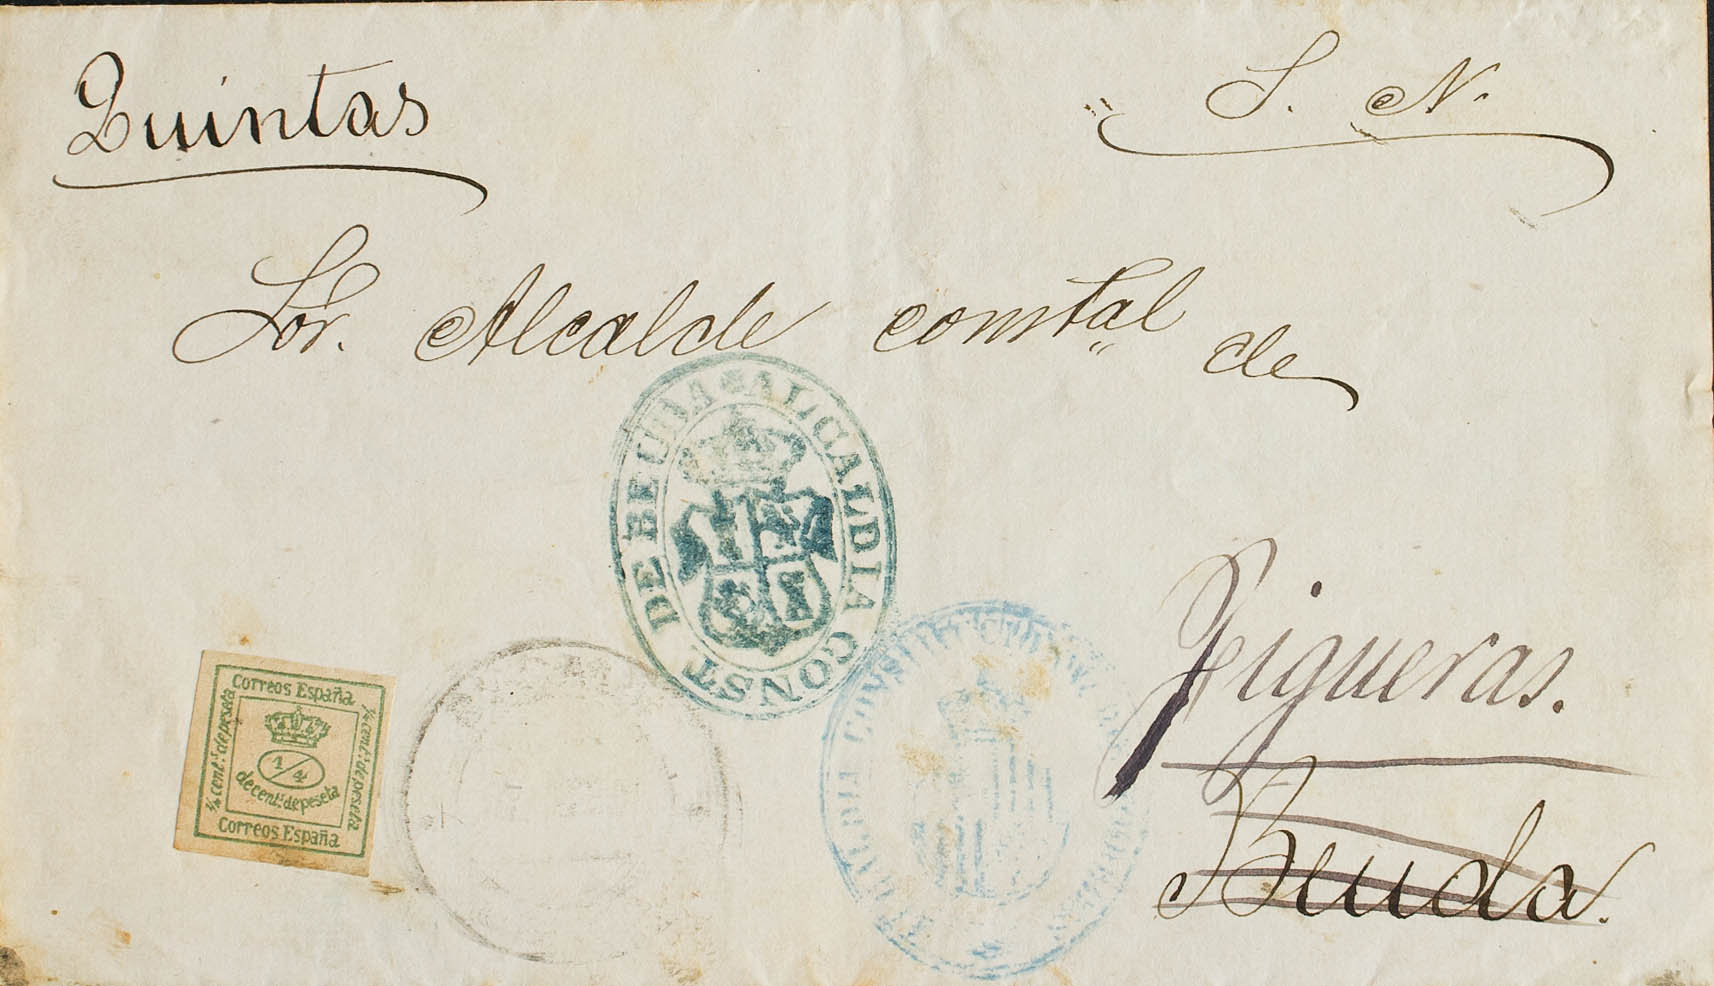 Quintas
S. N.
Sor. Alcalde constal de
ALCALDIA CONST.
DE BEUDA
Figueras.
Beuda.
Correos España
1/4 cent.s de peseta
1/4 cent.s de peseta
1/4
de cent.s de peseta
Correos España